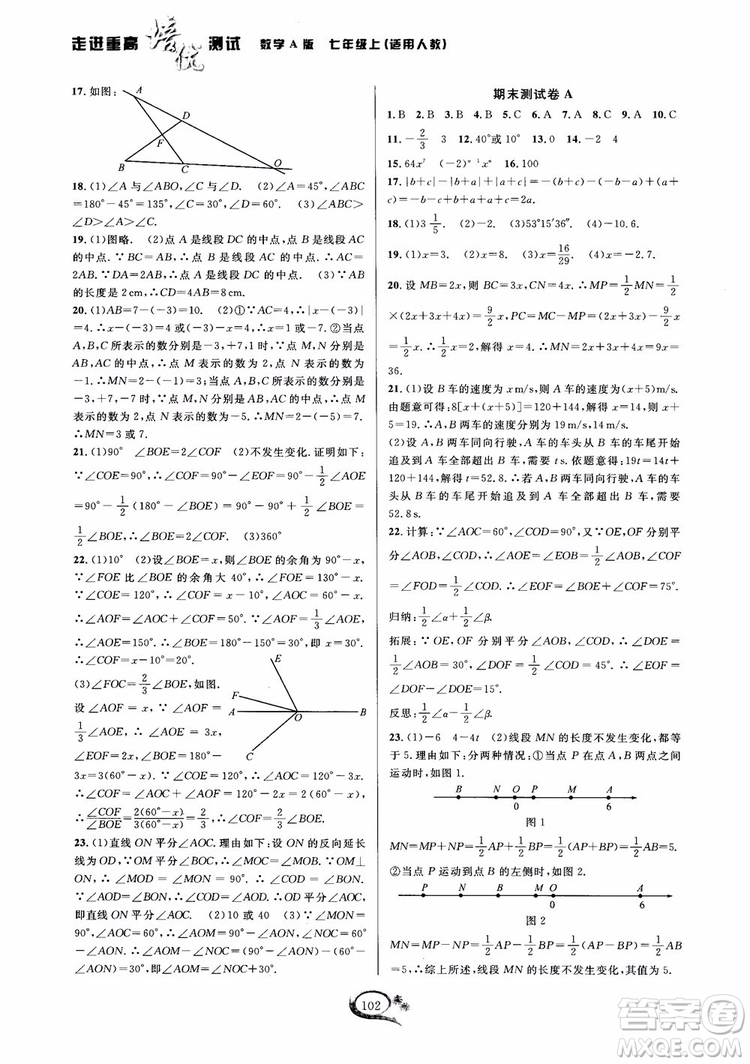 走进重高 培优 测试 数学 A 版 七年级上(适用人教)
17. 如图:
A
D
F
B
C
O
18. (1)∠A 与∠ABO,∠C 与∠D. (2)∠A=45°,∠ABC
=180°-45°=135°,∠C=30°,∠D=60°. (3)∠ABC>
∠D>∠A>∠C.
19. (1)图略. (2)点 A 是线段 DC 的中点,点 B 是线段 AC
的中点. ∵BC=AB,∴点 B 是线段 AC 的中点. ∴AC=
2AB. ∵DA=2AB,∴点 A 是线段 DC 的中点. (3)∵AB
的长度是 2 cm,∴CD=4AB=8 cm.
20. (1)AB=7-(-3)=10. (2)①∵AC=4,∴|x-(-3)|
=4. ∴x-(-3)=4 或(-3)-x=4. ∴x=1 或-7. ②当点
A,B,C 所表示的数分别是-3,+7,1 时,∵点 M,N 分别是
AB,AC 的中点,∴点 M 表示的数为 2,点 N 表示的数为
-1. ∴MN=2-(-1)=3;当点 A,B,C 所表示的数分别是
-3,+7,-7 时,∵点 M,N 分别是 AB,AC 的中点,∴点 M
表示的数为 2,点 N 表示的数为-5. ∴MN=2-(-5)=7.
∴MN=3 或 7.
21. (1)90° ∠BOE=2∠COF (2)不发生变化. 证明如下:
∵∠COE=90°,∴∠COF=90°-∠EOF=90°-1/2∠AOE
=90°-1/2(180°-∠BOE)=90°-90°+1/2∠BOE=
1/2∠BOE,∴∠BOE=2∠COF. (3)360°
22. (1)10° (2)设∠BOE=x,则∠BOE 的余角为 90°-x.
∵∠FOE 比∠BOE 的余角大 40°,∴∠FOE=130°-x.
∵∠COE=∠AOC=60°,∴∠COF=x-10°,∠AOC=60°.
∴∠AOF=∠AOC+∠COF=50°+x. ∵∠AOF=1/3∠AOE,
∴∠AOE=150°. ∴∠BOE=180°-150°=30°,即 x=30°.
∴∠COF=x-10°=20°.
(3)∠FOC=2/3∠BOE,如图.
设∠AOF=x. ∵∠AOF=
1/3∠AOE,∴∠AOE=3x,
∠EOF=2x. ∴∠BOE=180°-
3x=3(60°-x). ∵∠COE=120°,∴∠AOC=120°-3x.
∴∠COF=∠AOC+∠AOF=120°-3x+x=2(60°-x).
∴∠COF/∠BOE=2(60°-x)/3(60°-x)=2/3,∴∠COF=2/3∠BOE.
E
F
A
O
B
C
23. (1)直线 ON 平分∠AOC. 理由如下:设 ON 的反向延长
线为 OD,∵OM 平分∠BOC,∴∠MOC=∠MOB. ∵OM⊥
ON,∴∠MOD=∠MON=90°. ∴∠COD=∠BON. ∵∠BON
=∠AOD,∴∠COD=∠AOD. ∴OD 平分∠AOC,
即直线 ON 平分∠AOC. (2)10 或 40 (3)∵∠MON=
90°,∠AOC=60°,∴∠AOM=90°-∠AON,∠NOC=60°
-∠AON. ∴∠AOM-∠NOC=(90°-∠AON)-(60°-
∠AON)=30°.
期末测试卷 A
1. B 2. B 3. B 4. C 5. C 6. A 7. A 8. C 9. A 10. C
11. -2/3 12. 40°或 10° 13. 0 14. -2 4
15. 64x⁷ (-2)ⁿ⁻¹xⁿ 16. 100
17. |b+c|-|b+a|+|a+c|=-(b+c)-(-b-a)+(a+
c)=-b-c+b+a+a+c=2a.
18. (1)3 1/5. (2)-2. (3)53°15′36″. (4)-10.6.
19. (1)x=3. (2)x=8. (3)x=16/29. (4)x=-1.
20. 设 MB=2x,则 BC=3x,CN=4x,∴MP=1/2MN=1/2
×(2x+3x+4x)=9/2x,PC=MC-MP=(2x+3x)-9/2x
=1/2x=2. ∴x=4. ∴MN=2x+3x+4x=9x=
36.
21. (1)设 B 车的速度为 x m/s,则 A 车的速度为(x+5)m/s.
由题意可得:8[x+(x+5)]=120+144,解得 x=14. ∴x+
5=19. ∴A,B 两车的速度分别为 19 m/s,14 m/s.
(2)设 A,B 两车同向行驶,A 车的车头从 B 车的车尾开始
追及到 A 车全部超出 B 车用了 t s. 依题意得:19t=14t+
120+144,解得 t=52.8. ∴A,B 两车同向行驶,A 车的车
头从 B 车的车尾开始追及到 A 车全部超出 B 车用了
52.8 s.
22. 计算:∵∠AOC=60°,∠COD=90°,OE,OF 分别平
分∠AOB,∠COD,∴∠EOB=30°,∠BOF=45°. ∴∠EOF
=1/2∠AOB+1/2∠COD=∠EOB+∠COF=75°.
归纳:1/2∠α+1/2∠β.
拓展:∵OE,OF 分别平分∠AOB,∠COD,∴∠DOE=
1/2∠AOB=30°,∠DOF=1/2∠COD=45°. ∴∠EOF=
∠DOF-∠DOE=15°.
反思:1/2∠α+1/2∠β.
23. (1)-6 4-4t (2)线段 MN 的长度不发生变化,都等
于 5. 理由如下:分两种情况:①当点 P 在 A,B 两点之间
运动时,如图 1.
B N O P M A
0 6
图 1
MN=MP+NP=1/2AP+1/2BP=1/2(AP+BP)=1/2AB=5.
②当点 P 运动到点 B 的左侧时,如图 2.
P N B M O A
0 6
图 2
MN=MP-NP=1/2AP-1/2BP=1/2(AP-BP)=1/2AB
=5,∴综上所述,线段 MN 的长度不发生变化,其值为 5.
102
MXQE.COM
作业精灵